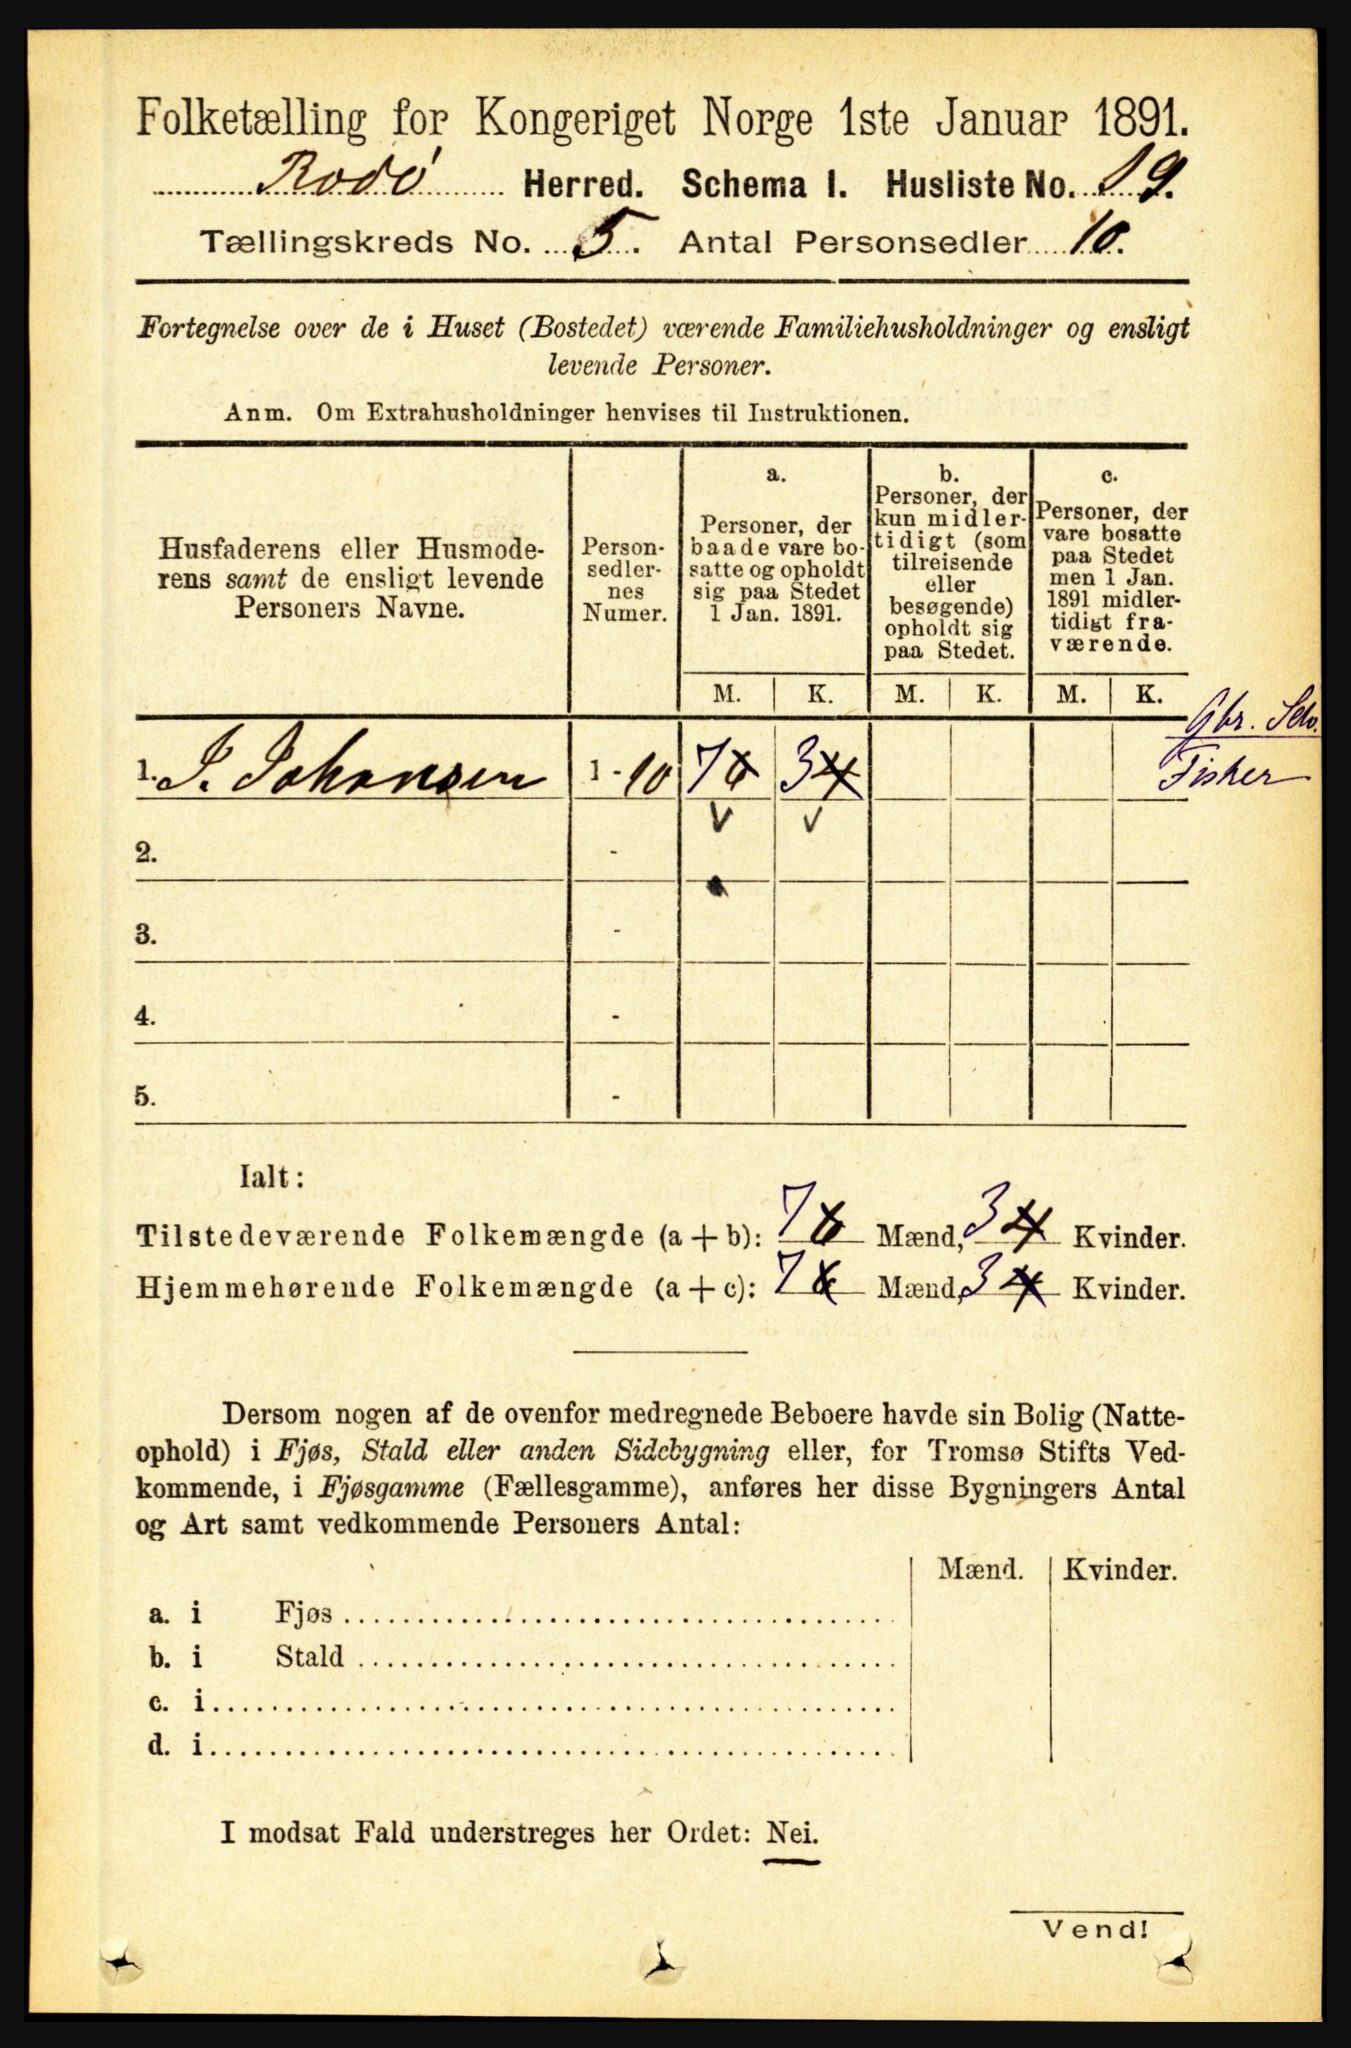 Folketælling for Kongeriget Norge 1ste Januar 1891.
Rodø Herred. Schema I. Husliste No. 19.
Tællingskreds No. 5. Antal Personsedler 10.
Fortegnelse over de i Huset (Bostedet) værende Familiehusholdninger og ensligt
levende Personer.
Anm. Om Extrahusholdninger henvises til Instruktionen.
Husfaderens eller Husmode-
rens samt de ensligt levende
Personers Navne.
Person-
sedler-
nes
Numer.
a.
Personer, der
baade vare bo-
satte og opholdt
sig paa Stedet
1 Jan. 1891.
b.
Personer, der
kun midler-
tidigt (som
tilreisende
eller
besøgende)
opholdt sig
paa Stedet.
c.
Personer, der
vare bosatte
paa Stedet
men 1 Jan.
1891 midler-
tidigt fra-
værende.
M. K. M. K. M. K.
Gbr. Selv.
1. I. Johansen 1 - 10 7 6 3 4 Fisker
2. -
3. -
4. -
5. -
Ialt:
Tilstedeværende Folkemængde (a + b): 7 6 Mænd, 3 4 Kvinder.
Hjemmehørende Folkemængde (a + c): 7 6 Mænd, 3 4 Kvinder.
Dersom nogen af de ovenfor medregnede Beboere havde sin Bolig (Natte-
ophold) i Fjøs, Stald eller anden Sidebygning eller, for Tromsø Stifts Ved-
kommende, i Fjøsgamme (Fællesgamme), anføres her disse Bygningers Antal
og Art samt vedkommende Personers Antal:
Mænd. Kvinder.
a. i Fjøs
b. i Stald
c. i
d. i
I modsat Fald understreges her Ordet: Nei.
Vend!